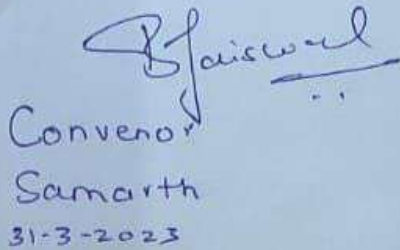 BJaiswal
Convenor
Samarth
31-3-2023